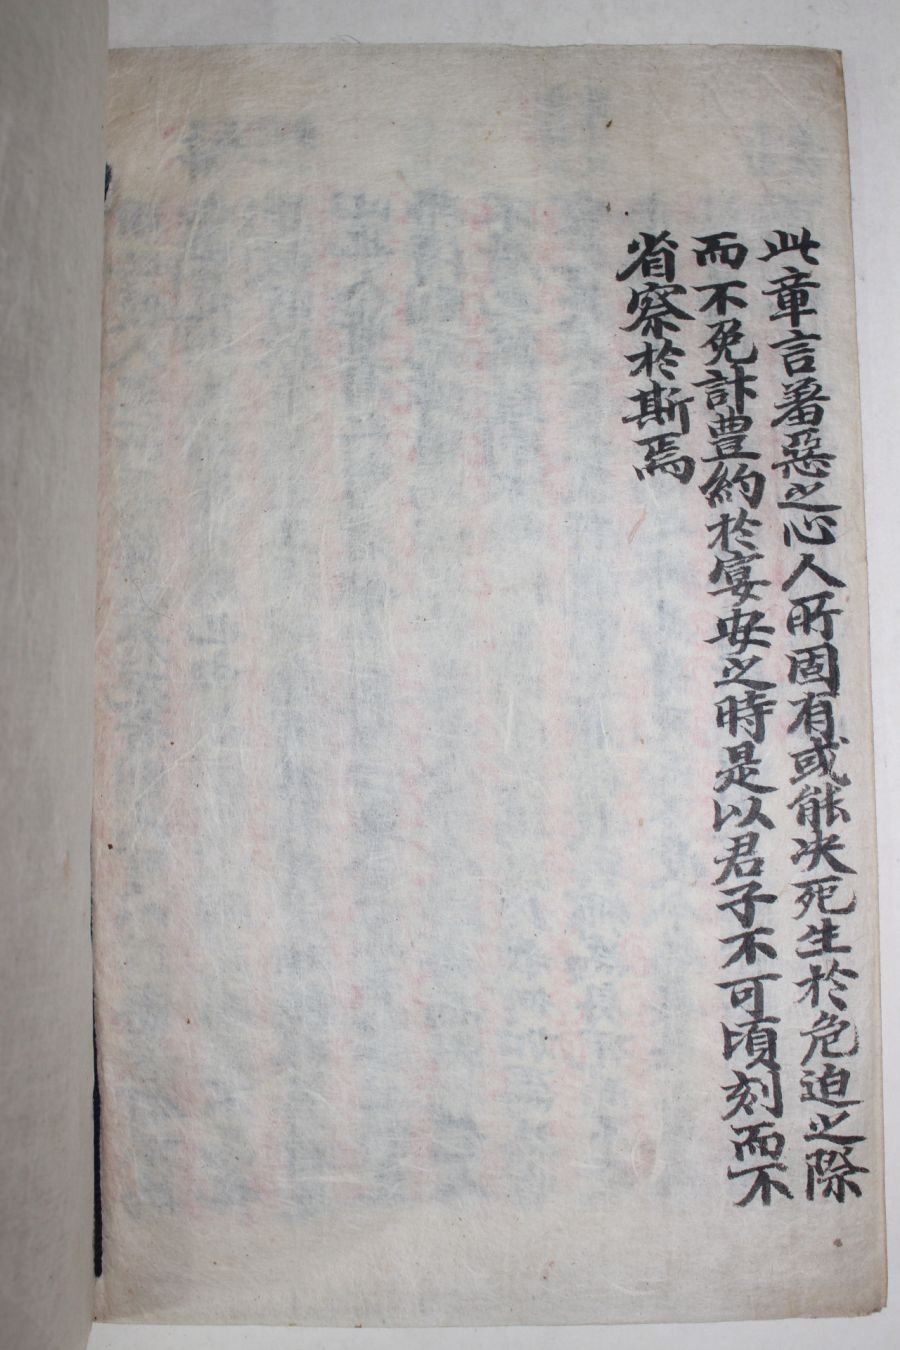 此章言著惡之心人所固有或能决死生於危迫之際
而不免計豊約於宴安之時是以君子不可頃刻而不
省察於斯焉